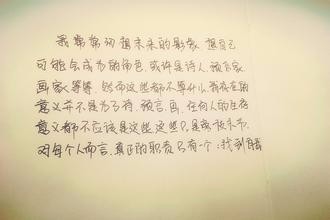 我常常幻想未来的影象,想自己
可能会成为的角色,或许是诗人、预言家、
画家等等,然而这些都不算什么,我存在的
意义并不是为了诗、预言、画,任何人的生存
意义都不应该是这些,这些只是旁枝末节。
对每个人而言,真正的职责只有一个:找到自我